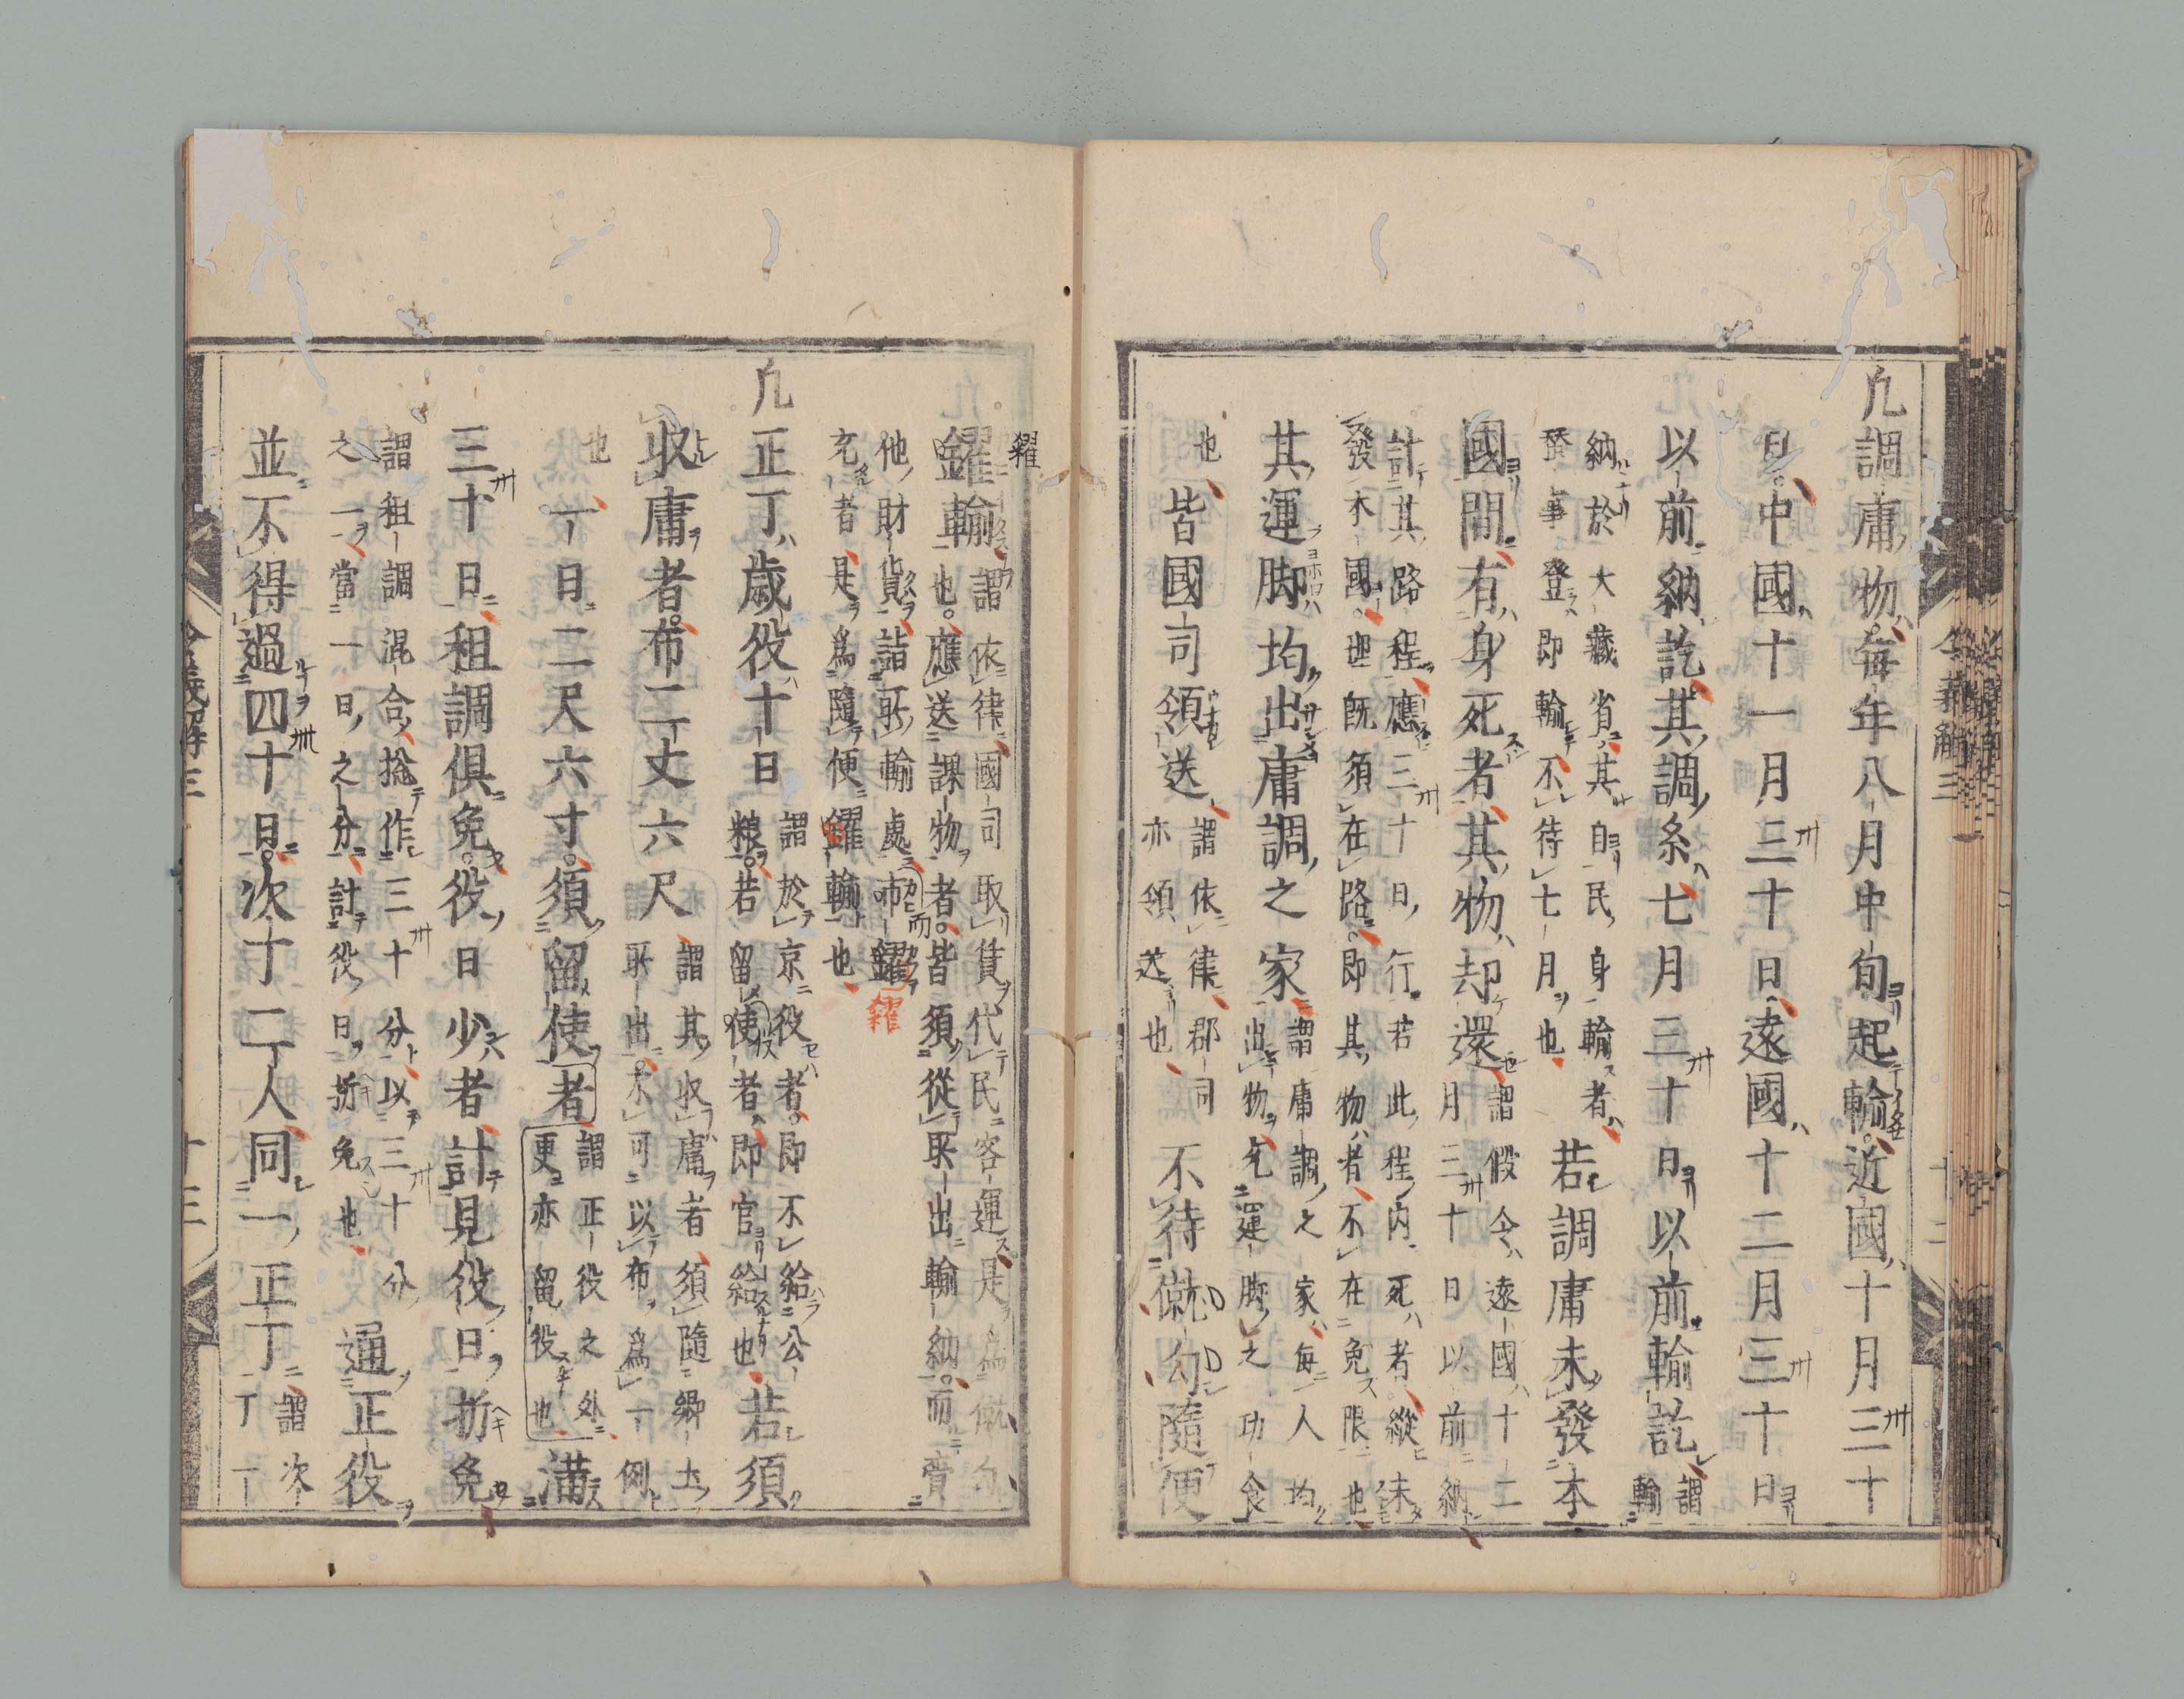 凢調庸物每年八月中旬起輸近國十月三十
日中國十一月三十日遠國十二月三十日
以前納訖其調糸七月三十日以前輸訖謂輸
納於大藏省其自民身輸者
發事登即輸不待七月也
若調庸未發本
國間有身死者其物却還謂假令遠國十二
月三十日以前納
計其路程應三十日行若此程内死者縱未
發本國
既須在路即其物者不在免限也
其運脚均出庸調之家謂庸調之家每人均
出物充運脚之功食
也皆國司領送謂依律郡司
亦領送也
不待僦勾隨便
糴
糴輸謂依律國司取賃代民客運是爲僦勾
也應送課物者皆須從所出輸納而賷
他財貨詣所輸處市糴
充者是爲隨便糴輸也
糴
凢正丁歳役十日謂於京役者即不給公
粮若留使者即官給也
若須
収庸者布二丈六尺謂其収庸者須隨郷土
所出不可以布爲一例
也一日二尺六寸須留使者謂正役之外
更亦留役也
満
三十日租調俱免役日少者計見役日折免
謂租調混合揔作三十分以三十分
之一當一日之分計役日折免也
通正役
並不得過四十日次丁二人同一正丁謂次
丁一
令義解三
十二
令義解三
十三